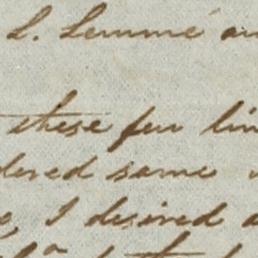 L. Lemmé an
these few lin
dered same
I desired a